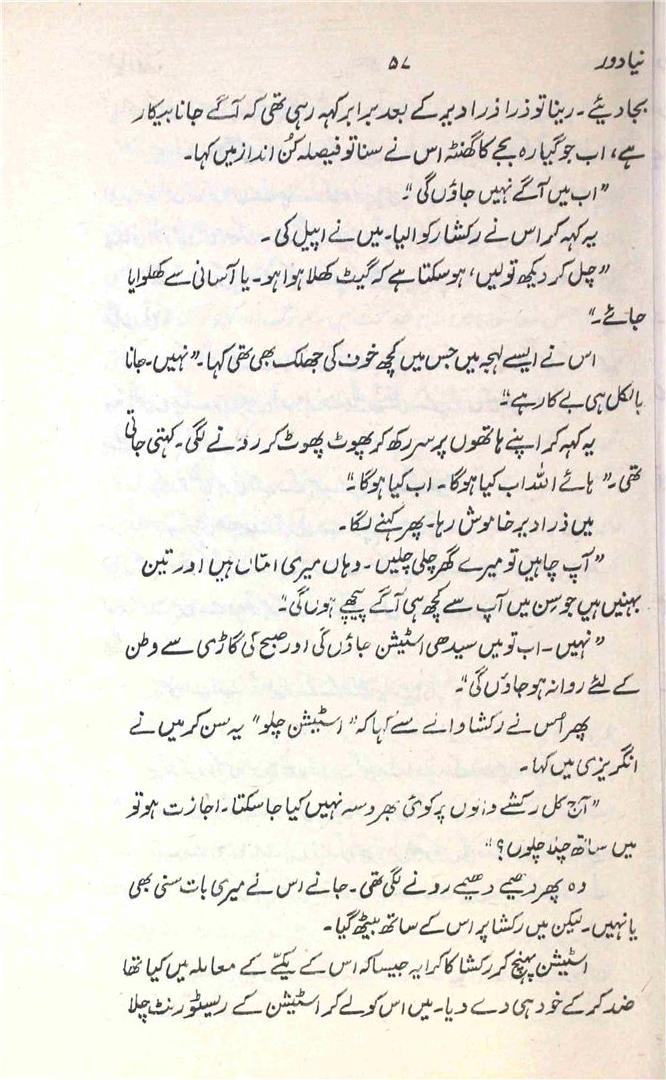 نیا دور ۵۷
بجا دیئے۔ رینا تو ذرا ذرا دیر کے بعد برابر کہہ رہی تھی کہ آگے جانا بیکار
ہے، اب جو گیارہ بجے کا گھنٹہ اس نے سنا تو فیصلہ کُن انداز میں کہا۔
”اب میں آگے نہیں جاؤں گی“۔
یہ کہہ کر اس نے رکشا رکوا لیا۔ میں نے اپیل کی۔
”چل کر دیکھ تو لیں، ہو سکتا ہے کہ گیٹ کھلا ہوا ہو۔ یا آسانی سے کھلوایا
جائے۔“
اس نے ایسے لہجہ میں جس میں کچھ خوف کی جھلک بھی تھی کہا۔ ”نہیں۔ جانا
بالکل ہی بے کار ہے“۔
یہ کہہ کر اپنے ہاتھوں پر سر رکھ کر پھوٹ پھوٹ کر رونے لگی۔ کہتی جاتی
تھی۔ ”ہائے اللہ اب کیا ہوگا۔ اب کیا ہوگا“۔
میں ذرا دیر خاموش رہا۔ پھر کہنے لگا۔
”آپ چاہیں تو میرے گھر چلی چلیں۔ وہاں میری امّاں ہیں اور تین
بہنیں ہیں جو سِن میں آپ سے کچھ ہی آگے پیچھے ہوں گی“۔
”نہیں۔ اب تو میں سیدھی اسٹیشن جاؤں گی اور صبح کی گاڑی سے وطن
کے لئے روانہ ہو جاؤں گی“۔
پھر اُس نے رکشا والے سے کہا کہ ”اسٹیشن چلو“ یہ سن کر میں نے
انگریزی میں کہا۔
”آج کل رکشے والوں پر کوئی بھروسہ نہیں کیا جا سکتا۔ اجازت ہو تو
میں ساتھ چلا چلوں؟“
وہ پھر دھیمے دھیمے رونے لگی تھی۔ جانے اس نے میری بات سنی بھی
یا نہیں۔ لیکن میں رکشا پر اس کے ساتھ بیٹھ گیا۔
اسٹیشن پہنچ کر رکشا کا کرایہ جیسا کہ اس کے یکّے کے معاملہ میں کیا تھا
ضد کر کے خود ہی دے دیا۔ میں اس کو لے کر اسٹیشن کے ریسٹورنٹ چلا